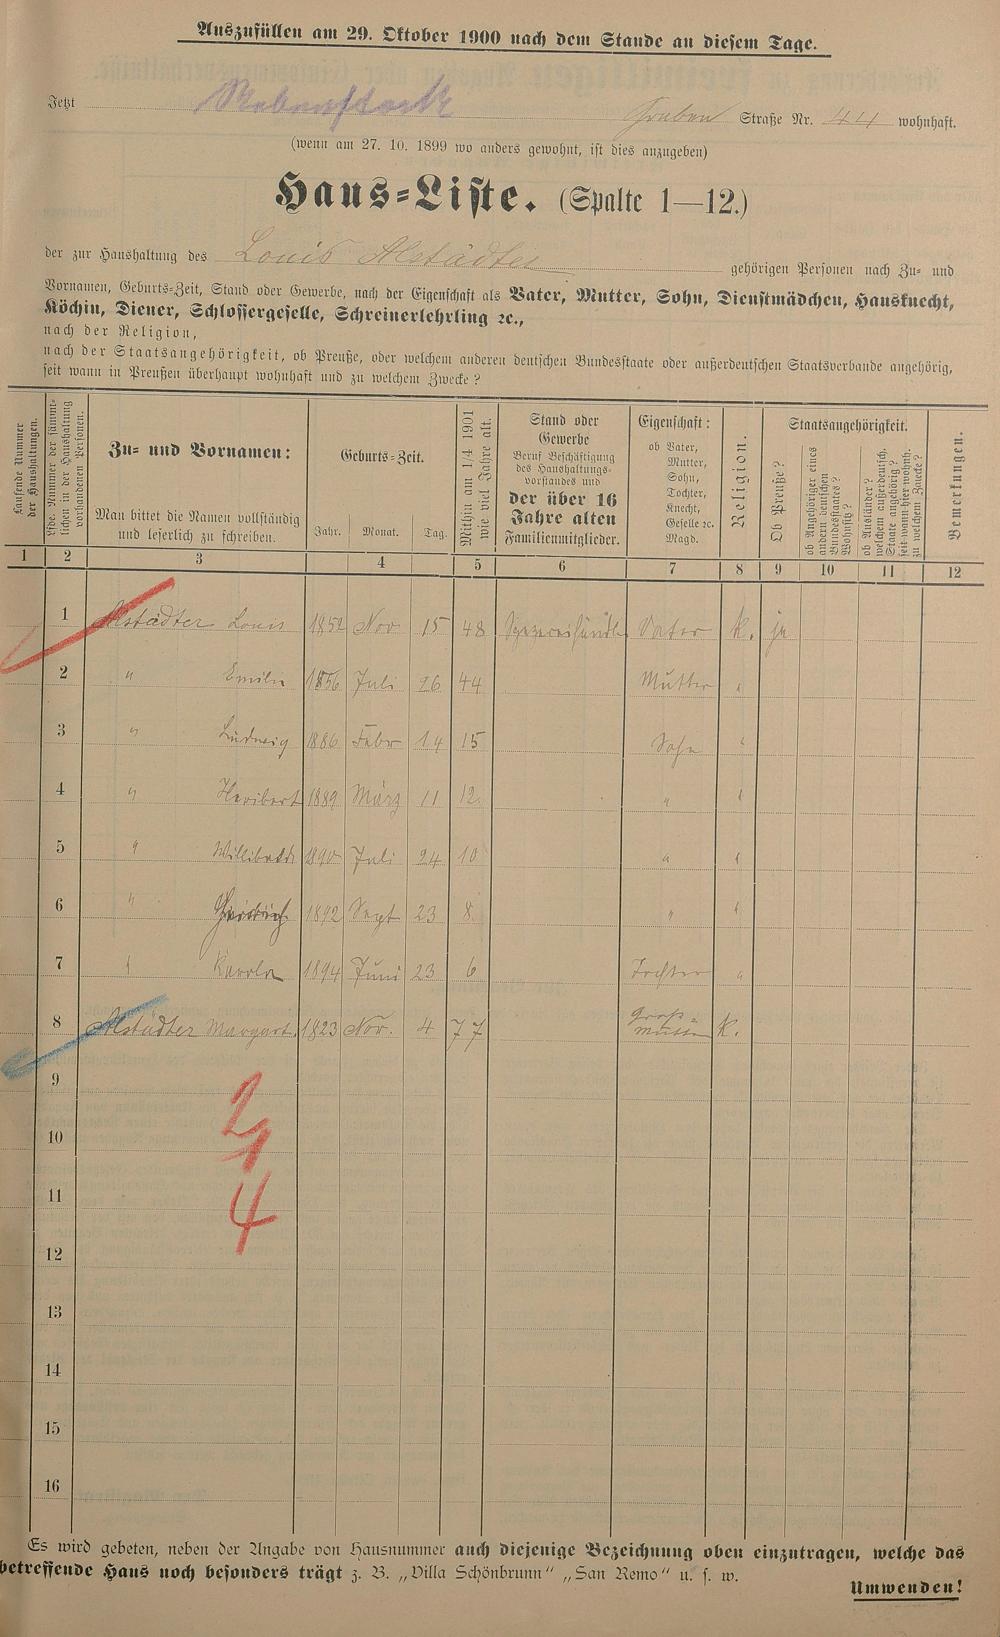 Auszufüllen am 29. Oktober 1900 nach dem Stande an diesem Tage.
Jetzt Rebenstock Graben Straße Nr. 44 wohnhaft.
(wenn am 27. 10. 1899 wo anders gewohnt, ist dies anzugeben)
Haus-Liste. (Spalte 1—12.)
der zur Haushaltung des Louis Alstädter gehörigen Personen nach Zu- und
Vornamen, Geburts-Zeit, Stand oder Gewerbe, nach der Eigenschaft als Vater, Mutter, Sohn, Dienstmädchen, Hausknecht,
Köchin, Diener, Schlossergeselle, Schreinerlehrling ꝛc.,
nach der Religion,
nach der Staatsangehörigkeit, ob Preuße, oder welchem anderen deutschen Bundesstaate oder außerdeutschen Staatsverbande angehörig,
seit wann in Preußen überhaupt wohnhaft und zu welchem Zwecke?
Laufende Nummer
der Haushaltungen.
Lfde. Nummer der sämmt-
lichen in der Haushaltung
vorhandenen Personen.
Zu- und Vornamen:
Man bittet die Namen vollständig
und leserlich zu schreiben.
Geburts-Zeit.
Jahr. Monat. Tag.
Mithin am 1/4 1901
wie viel Jahre alt.
Stand oder
Gewerbe
Beruf Beschäftigung
des Haushaltungs-
vorstandes und
der über 16
Jahre alten
Familienmitglieder.
Eigenschaft:
ob Vater,
Mutter,
Sohn,
Tochter,
Knecht,
Geselle ꝛc.
Magd.
Religion.
Staatsangehörigkeit.
Ob Preuße?
ob Angehöriger eines
andern deutschen
Bundesstaates?
Wohnsitz?
ob Ausländer?
welchem außerdeutsch.
Staate angehörig?
seit wann hier wohnh.
zu welchem Zwecke?
Bemerkungen.
1 2 3 4 5 6 7 8 9 10 11 12
1 Alstädter Louis 1852 Nov 15 48 Spezereihändl. Vater k. ja
2 " Emilie 1856 Juli 26 44 Mutter "
3 " Ludwig 1886 Febr 14 15 Sohn "
4 " Heribert 1889 März 11 12 " "
5 " Willibald 1890 Juli 24 10 " "
6 " 1892 Sept 23 8 " "
7 " Karola 1894 Juni 23 6 Tochter "
8 Alstädter Margart. 1823 Nov. 4 77 Groß-
mutter k.
9
10
11
4
12
13
14
15
16
Es wird gebeten, neben der Angabe von Hausnummer auch diejenige Bezeichnung oben einzutragen, welche das
betreffende Haus noch besonders trägt z. B. „Villa Schönbrunn" „San Remo" u. s. w.
Umwenden!